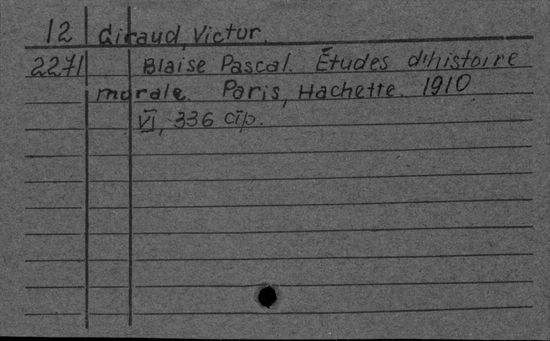 12 Giraud, Victor.
2271 Blaise Pascal. Études d'histoire
morale. Paris, Hachette. 1910
VI, 336 стр.